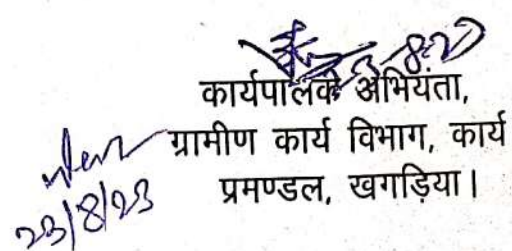 कार्यपालक अभियंता,
ग्रामीण कार्य विभाग, कार्य
प्रमण्डल, खगड़िया।
23/8/23